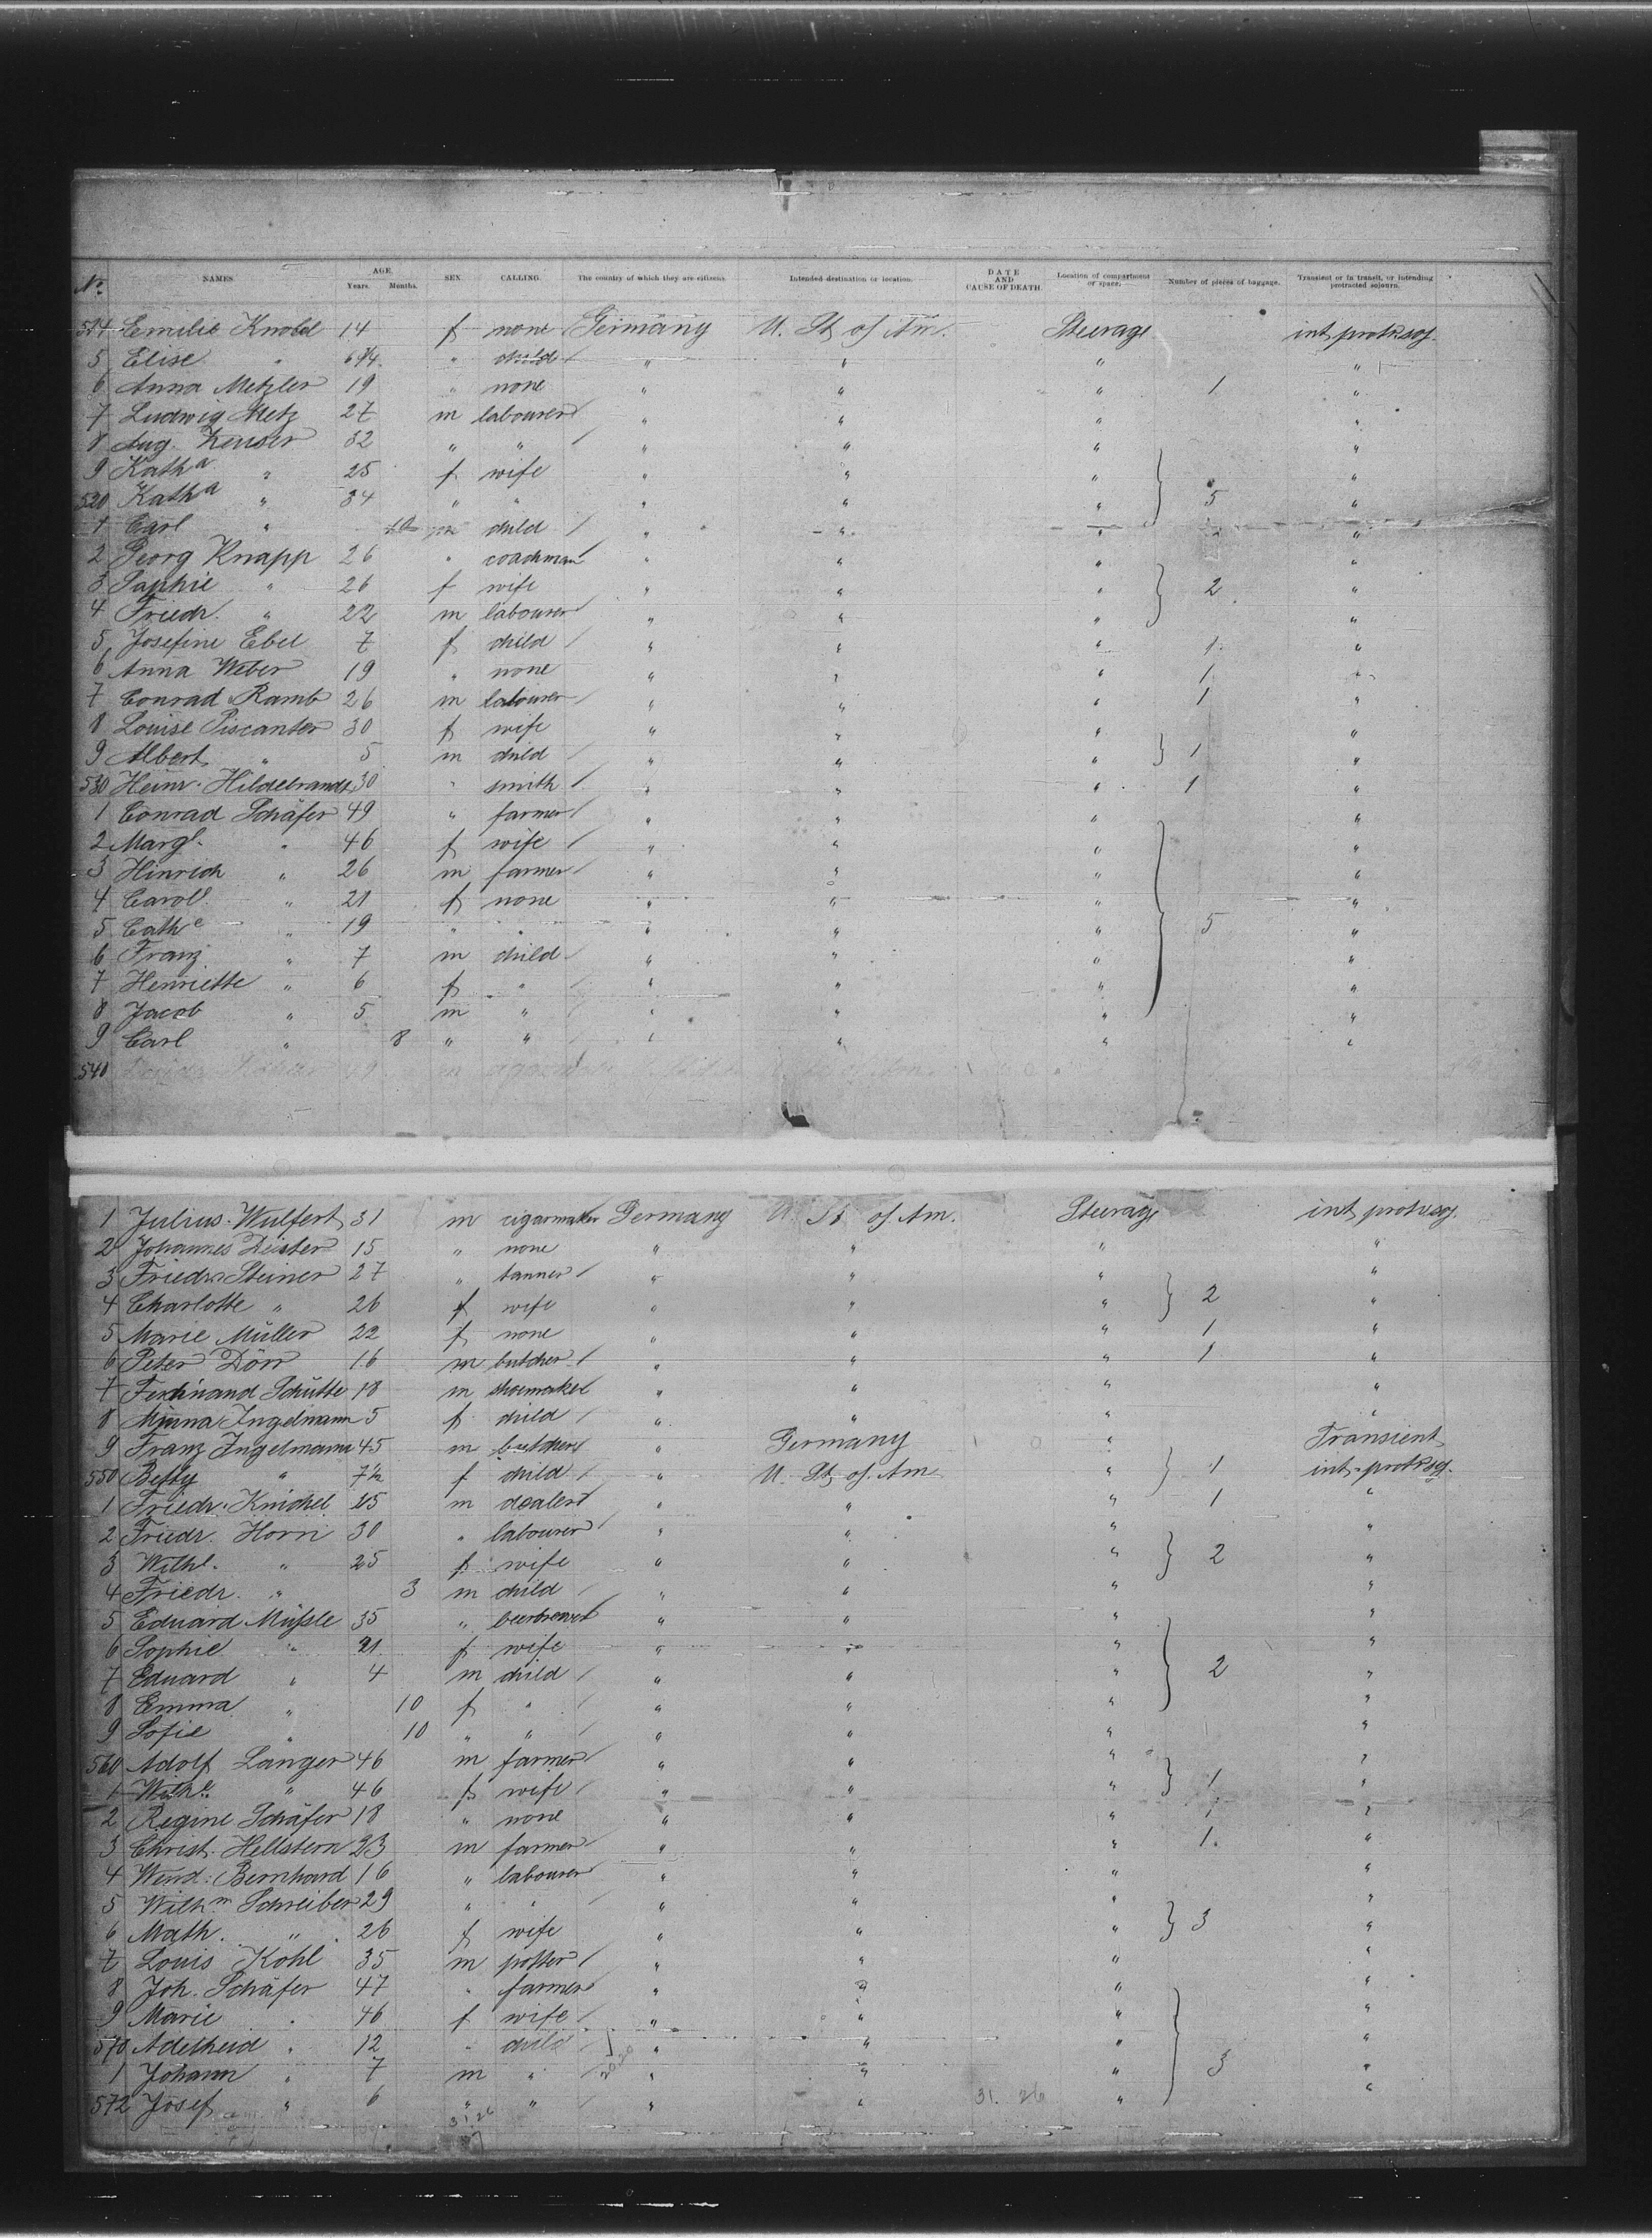 No. NAMES AGE. Years. Months. SEX. CALLING. The country of which they are citizens. Intended destination or location. DATE AND CAUSE OF DEATH. Location of compartment or space. Number of pieces of baggage. Transient or in transit, or intending protracted sojourn.
514 Emilie Knobel 14 f none Germany U. St of Am. Steerage int protr. soj.
5 Elise " 6 3/4 " child " " " "
6 Anna Metzler 19 " none " " " 1 "
7 Ludwig Metz 27 m labourer " " " "
8 Aug. Keuser 32 " " " " " "
9 Katha " 25 f wife " " " "
520 Katha " 34 " " " " " 5 "
1 Carl " 10 m child " " " "
2 Georg Knapp 26 " coachman " " " "
3 Sophie " 26 f wife " " " 2 "
4 Friedr. " 22 m labourer " " " "
5 Josefine Ebel 7 f child " " " 1 "
6 Anna Weber 19 " none " " " 1 "
7 Conrad Ramb 26 m labourer " " " 1 "
8 Louise Piscanter 30 f wife " " " "
9 Albert " 5 m child " " " 1 "
530 Heinr. Hildebrandt 30 " smith " " " 1 "
1 Conrad Schäfer 49 " farmer " " " "
2 Margt. " 46 f wife " " " "
3 Hinrich " 26 m farmer " " " "
4 Carol " 21 f none " " " "
5 Cathe " 19 " " " " " 5 "
6 Franz " 7 m child " " " "
7 Henriette " 6 f " " " " "
8 Jacob " 5 m " " " " "
9 Carl " 8 " " " " " "
540
1 Julius Wulfert 31 m cigarmaker Germany U. St of Am. Steerage int protr. soj.
2 Johannes Deister 15 " none " " " "
3 Friedr. Steiner 27 " tanner " " " "
4 Charlotte " 26 f wife " " " 2 "
5 Marie Müller 22 f none " " " 1 "
6 Peter Dörr 16 m butcher " " " 1 "
7 Ferdinand Schütte 18 m shoemaker " " " "
8 Minna Ingelmann 5 f child " " " "
9 Franz Ingelmann 45 m butcher " Germany " Transient
550 Betty " 7 1/2 f child " U. St of Am " 1 int. protr. soj.
1 Friedr. Knichel 25 m dealer " " " 1 "
2 Friedr. Horn 30 " labourer " " " "
3 Wilhl. " 25 f wife " " " 2 "
4 Friedr. " 3 m child " " " "
5 Eduard Müßle 35 " beerbrewer " " " "
6 Sophie " 21 f wife " " " "
7 Eduard " 4 m child " " " 2 "
8 Emma " 10 f " " " " "
9 Sofie " 10 " " " " " "
560 Adolf Langer 46 m farmer " " " "
1 Wilhe. " 46 f wife " " " 1 "
2 Regine Schäfer 18 " none " " " 1 "
3 Christ. Hellstern 23 m farmer " " " 1. "
4 Wend: Bernhard 16 " labourer " " " "
5 Wilhm Schreiber 29 " " " " " "
6 Math. " 26 f wife " " " 3 "
7 Louis Kohl 35 m potter " " " "
8 Joh. Schäfer 47 " farmer " " " "
9 Marie " 46 f wife " " " "
570 Adelheid " 12 " child " " " "
1 Johann " 7 m " " " " 3 "
572 Josef " 6 " " " " 31. 26 " "
31.26